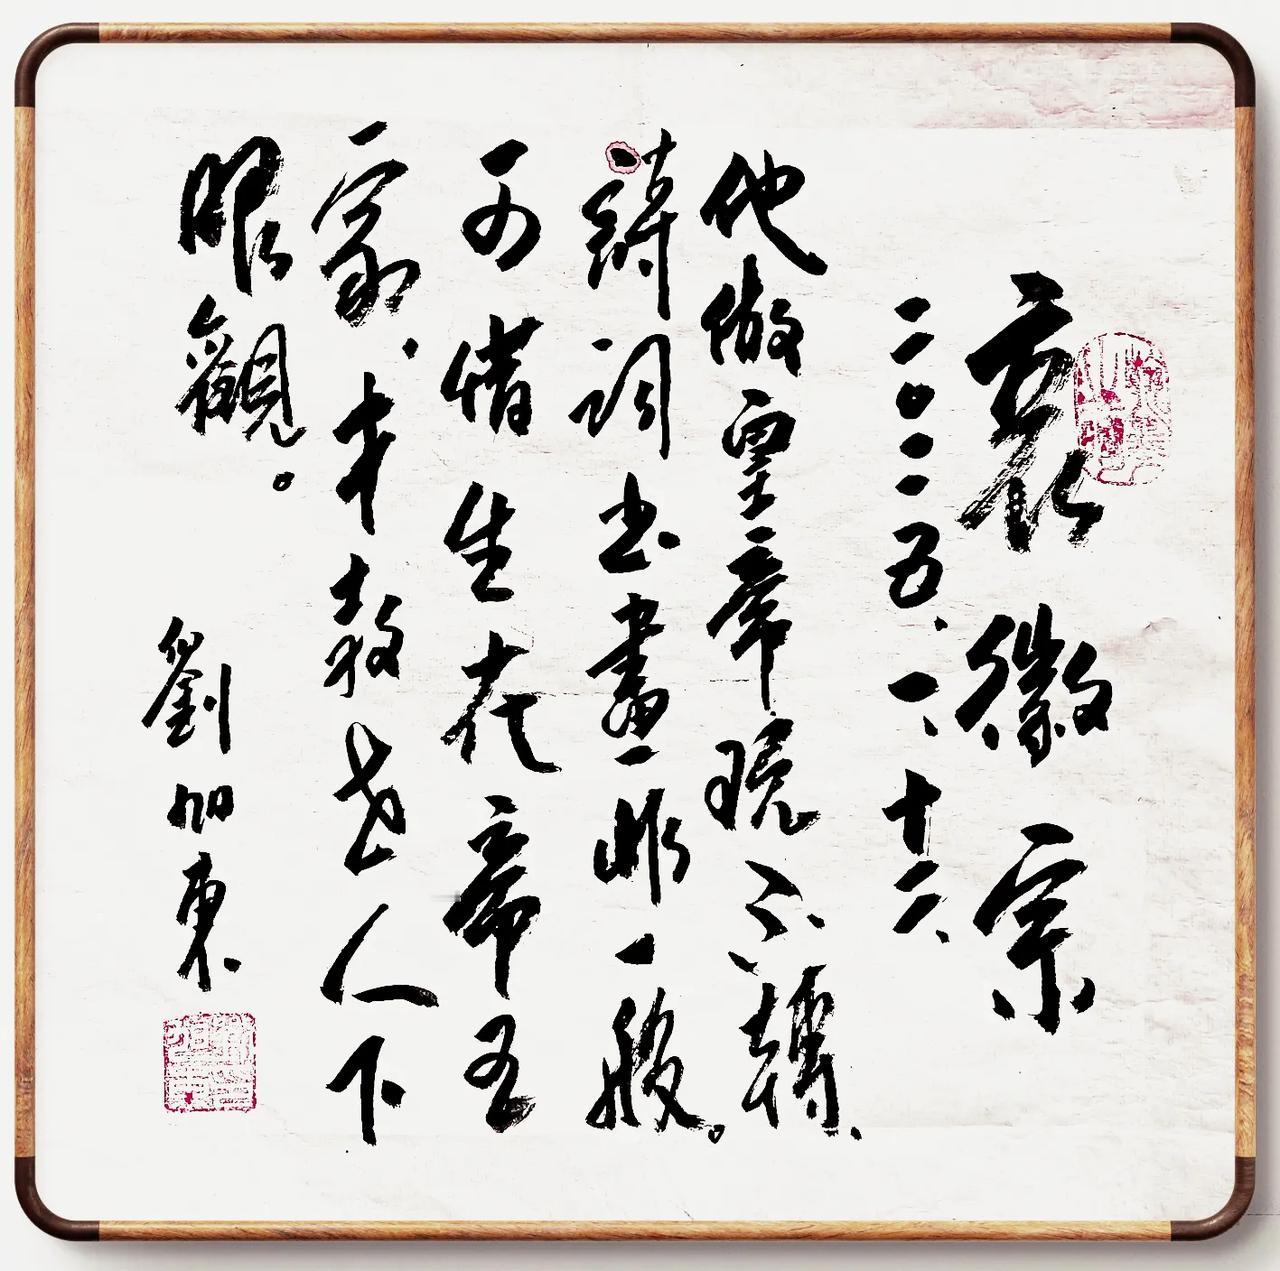 哀徽宗
二〇二五、一、十二、
他做皇帝玩不轉、
詩詞书畫非一般。
可惜生在帝王
家、才教世人下
眼觀。
劉加東